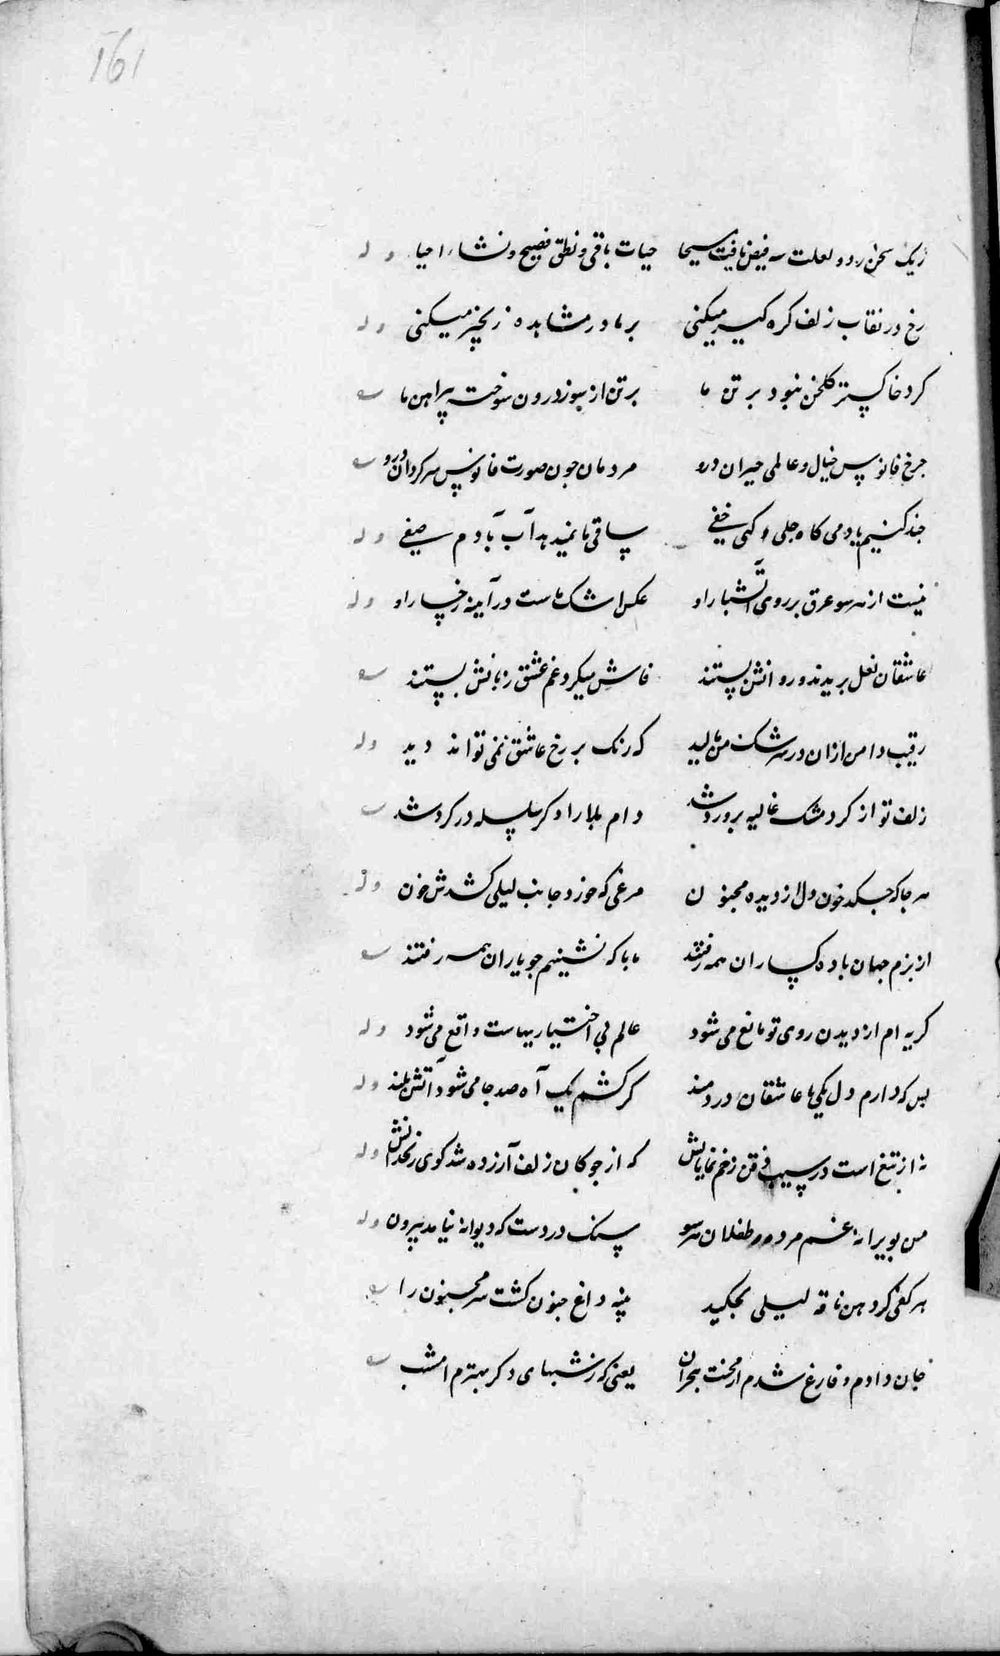 161
زیک سخن ز دو لعلت سه فیض یافت مسیحا حیات باقی و نطق فصیح و نشاء احیا وله
رخ در نقاب زلف کره کیر میکنی بر ما در مشاهده زنجیر میکنی وله
کرد خاکستر کلخن نبود بر تن ما بر تن از سوز درون سوخت پیراهن ما
چرخ فانوس خیال و عالمی حیران درو مردمان چون صورت فانوس سرکردان درو
چند کنیم یاد می کاه جلی و کی خفی ساقی ما نمیدهد آب آدم صفی وله
نیست از هر سو عرق بر روی آتشبار او عکس اشک ماست در آیینه رخسار او وله
عاشقان نعل بریدند و روانش بستند فاش میکرد غم عشق زبانش بستند
رقیب دامن ازان در سرشک من مالید که رنک بر رخ عاشق نمی تواند دید وله
زلف تو از کرد مشک غالیه پرورد شد دام بلا را دکر سلسله در کرد شد
هر جا که چکد خون دل از دیده مجنون مرغی که خورد جانب لیلی کشدش خون وله
از بزم جهان باده کساران همه رفتند ما با که نشینیم چو یاران همه رفتند
کریه ام از دیدن روی تو مانع می شود عالم بی اختیاریهاست واقع می شود وله
بس که دارم دل یکی با عاشقان دردمند کر کشم یک آه صد جا می شود آتش بلند وله
نه از تیغ است در سیب ذقن زخم نمایانش که از چوکان زلف آزرده شد کوی زنخدانش وله
من بویرانه غم مرده و طفلان هر سو سنک در دست که دیوانه نیامد بیرون وله
هر کفی کز دهن ناقه لیلی بچکید پنبه داغ جنون کشت سر مجنون را
جان دادم و فارغ شدم از محنت هجران یعنی که ز شبهای دکر بهترم امشب